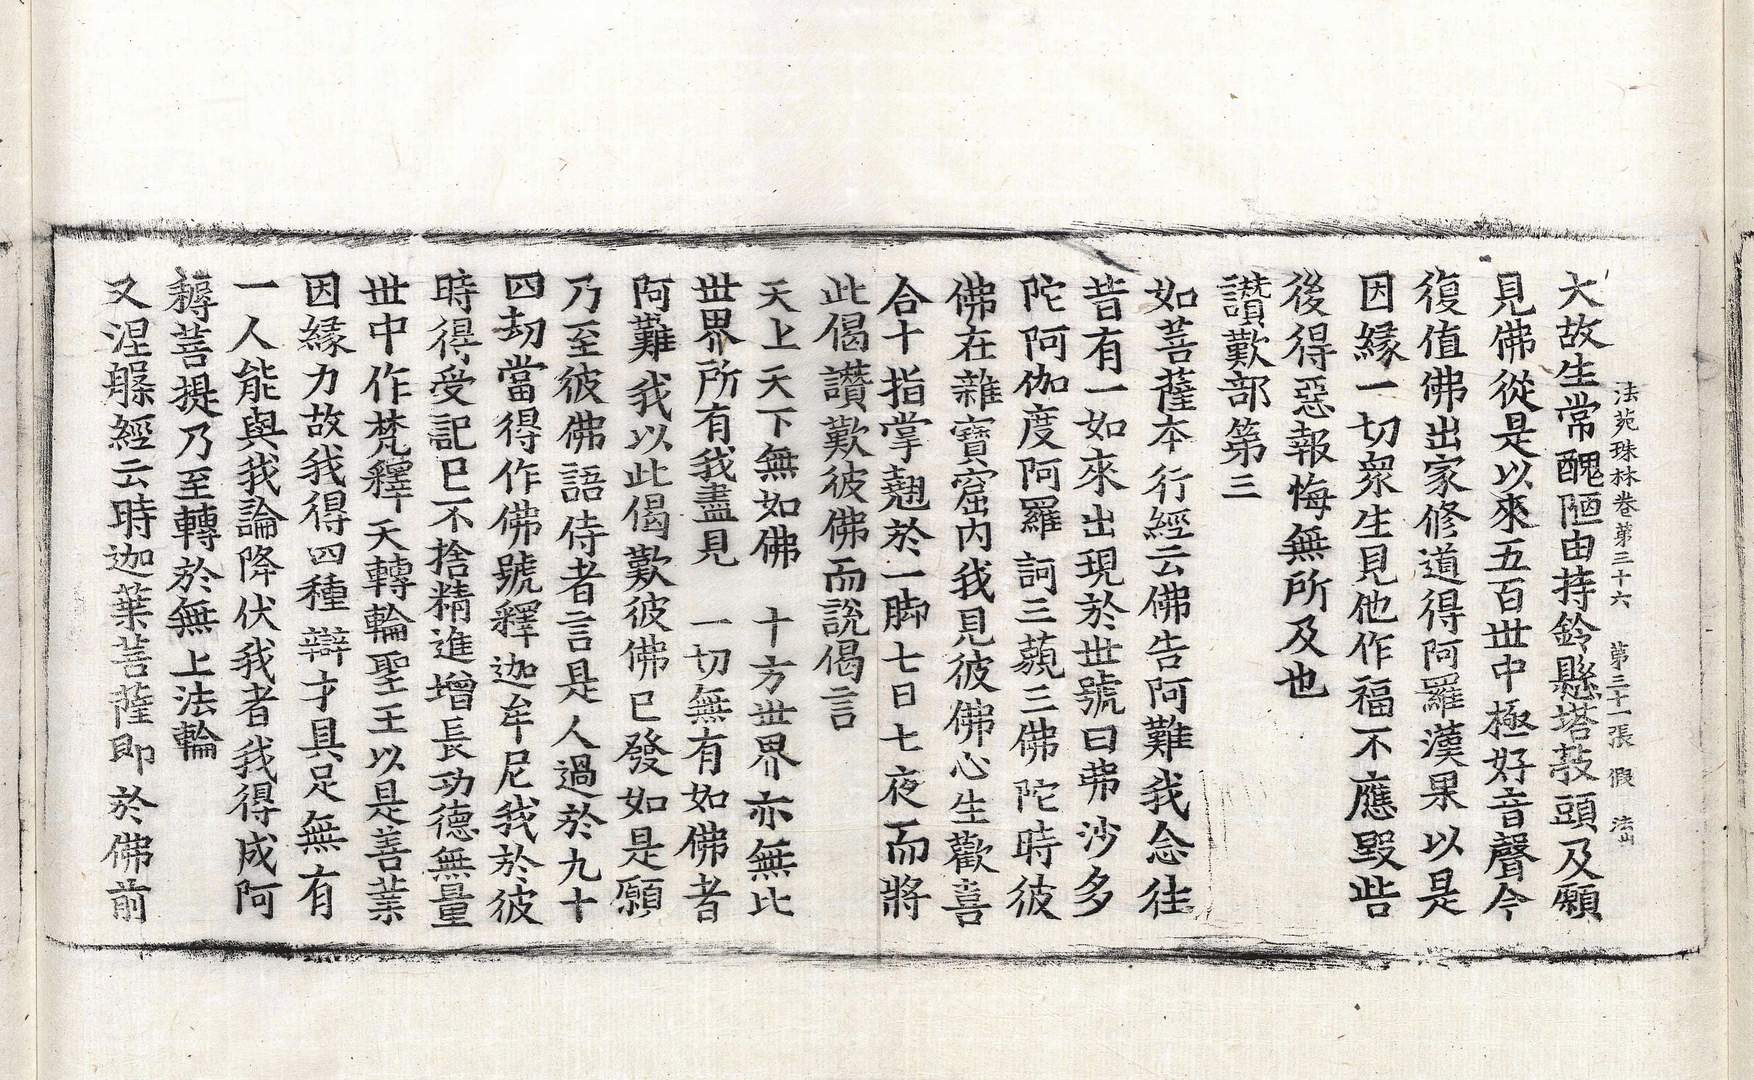 法苑珠林卷第三十六　第三十一張　假　法山
大故生常醜陋由持鈴懸塔棖頭及願
見佛從是以來五百世中極好音聲今
復值佛出家修道得阿羅漢果以是
因緣一切衆生見他作福不應毀呰
後得惡報悔無所及也
讚歎部第三
如菩薩本行經云佛告阿難我念往
昔有一如來出現於世號曰弗沙多
陀阿伽度阿羅訶三藐三佛陀時彼
佛在雜寶窟內我見彼佛心生歡喜
合十指掌翹於一脚七日七夜而將
此偈讚歎彼佛而說偈言
天上天下無如佛　十方世界亦無比
世界所有我盡見　一切無有如佛者
阿難我以此偈歎彼佛已發如是願
乃至彼佛語侍者言是人過於九十
四劫當得作佛號釋迦牟尼我於彼
時得受記已不捨精進增長功德無量
世中作梵釋天轉輪聖王以是善業
因緣力故我得四種辯才具足無有
一人能與我論降伏我者我得成阿
耨菩提乃至轉於無上法輪
又涅槃經云時迦葉菩薩即於佛前